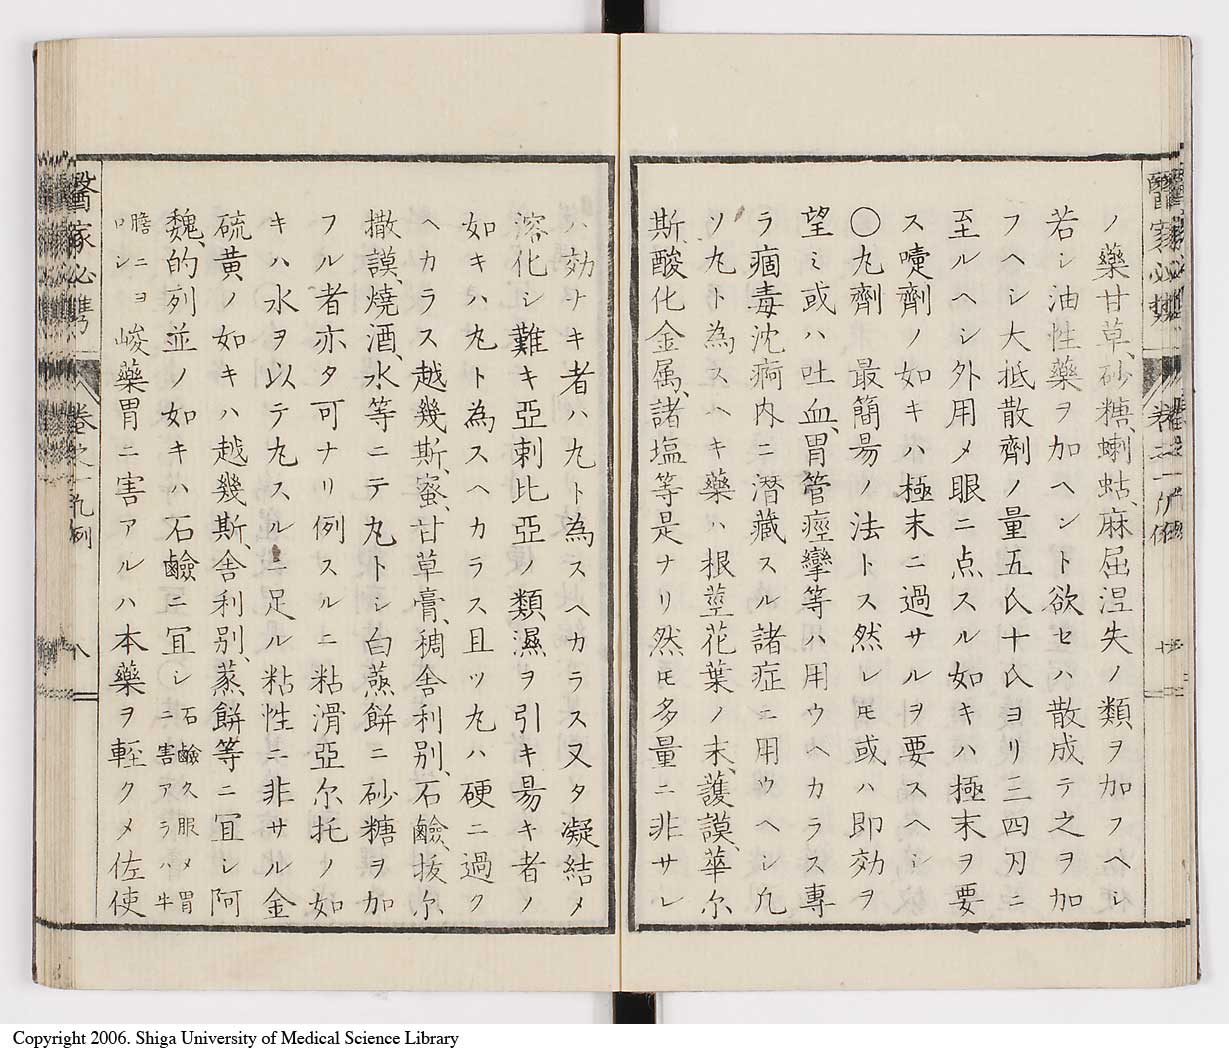 醫家必携 卷之一 凡例
ノ藥甘草、砂糖、蝲蛄、麻屈涅失ノ類ヲ加フヘシ
若シ油性藥ヲ加ヘント欲セハ散成テ之ヲ加
フヘシ大抵散劑ノ量五氏十氏ヨリ三四刀ニ
至ルヘシ外用メ眼ニ点スル如キハ極末ヲ要
ス嚔劑ノ如キハ極末ニ過サルヲ要スヘシ
〇丸劑 最簡昜ノ法トス然レ𪜈或ハ即効ヲ
望ミ或ハ吐血、胃管痙攣等ハ用ウヘカラス專
ラ痼毒沈痾内ニ潜藏スル諸症ニ用ウヘシ凢
ソ丸ト為スヘキ藥ハ根莖花葉ノ末、護謨、華尓
斯、酸化金属、諸塩等是ナリ然𪜈多量ニ非サレ
ハ効ナキ者ハ丸ト為スヘカラス又タ凝結メ
溶化シ難キ亞剌比亞ノ類濕ヲ引キ昜キ者ノ
如キハ丸ト為スヘカラス且ツ丸ハ硬ニ過ク
ヘカラス越幾斯、蜜、甘草膏、稠舎利別、石鹼、抜尓
撒謨、燒酒、水等ニテ丸トシ白蒸餅ニ砂糖ヲ加
フル者亦タ可ナリ例スルニ粘滑亞尓托ノ如
キハ水ヲ以テ丸スルニ足ル粘性ニ非サル金
硫黄ノ如キハ越幾斯、舎利別、蒸餅等ニ冝シ阿
魏、的列並ノ如キハ石鹼ニ冝シ 石鹼久服メ胃ニ害アラハ牛
膽ニヨロシ 峻藥胃ニ害アルハ本藥ヲ輕クメ佐使
醫家必携 卷之一 凡例 八
Copyright 2006. Shiga University of Medical Science Library